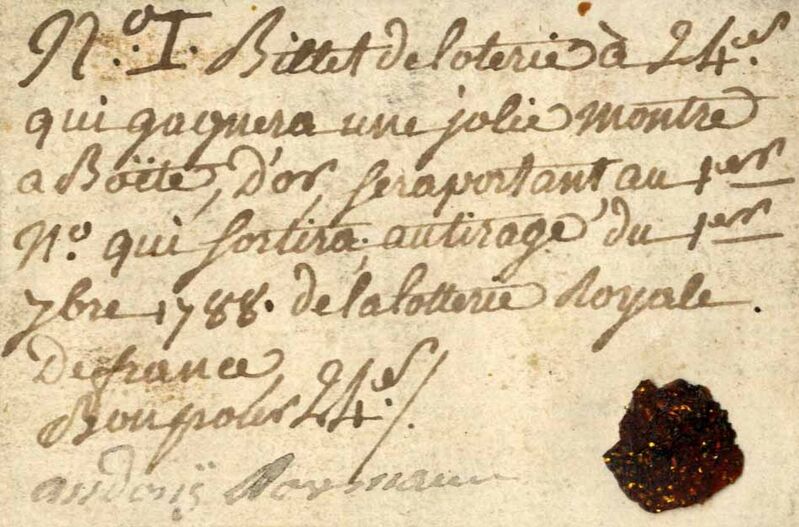 N.º I. Billet de loterie à 24.s
qui gagnera une jolie montre
a Boëte, d'or, seraportant au 1er
Nº. qui sortira, autirage du 1er
7bre 1788. delalotterie Royale.
Defrance,
Bon pour 24.s/.